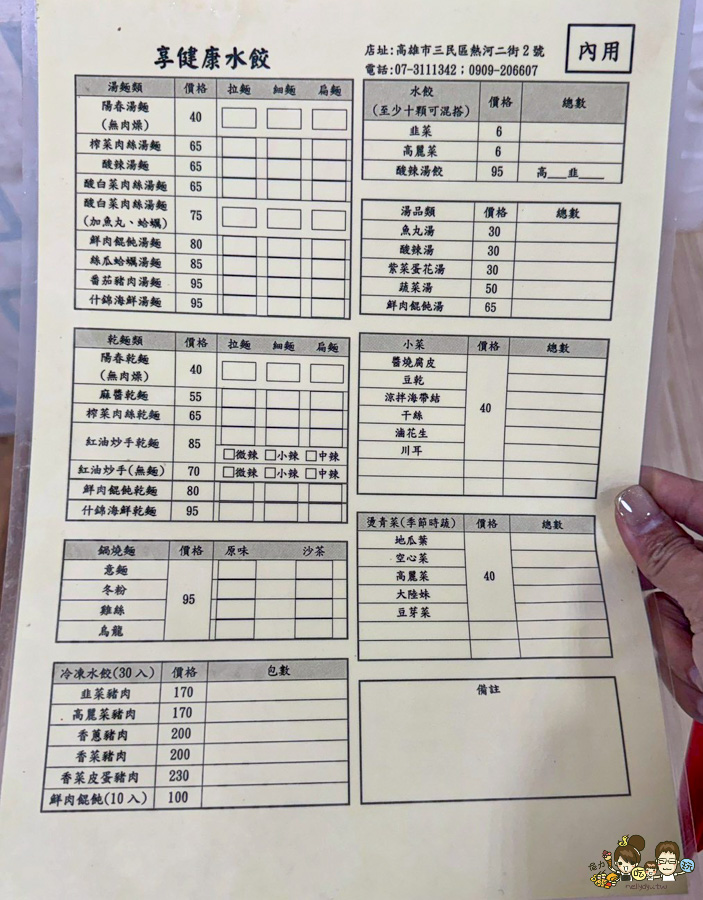 享健康水餃
店址:高雄市三民區熱河二街2號
電話:07-3111342；0909-206607
內用
湯麵類 價格 拉麵 細麵 扁麵
陽春湯麵
(無肉燥) 40
榨菜肉絲湯麵 65
酸辣湯麵 65
酸白菜肉絲湯麵 65
酸白菜肉絲湯麵
(加魚丸、蛤蠣) 75
鮮肉餛飩湯麵 80
絲瓜蛤蠣湯麵 85
番茄豬肉湯麵 95
什錦海鮮湯麵 95
乾麵類 價格 拉麵 細麵 扁麵
陽春乾麵
(無肉燥) 40
麻醬乾麵 55
榨菜肉絲乾麵 65
紅油炒手乾麵 85
微辣 小辣 中辣
紅油炒手(無麵) 70 微辣 小辣 中辣
鮮肉餛飩乾麵 80
什錦海鮮乾麵 95
鍋燒麵 價格 原味 沙茶
意麵
冬粉
雞絲
烏龍
95
冷凍水餃(30入) 價格 包數
韭菜豬肉 170
高麗菜豬肉 170
香蔥豬肉 200
香菜豬肉 200
香菜皮蛋豬肉 230
鮮肉餛飩(10入) 100
水餃
(至少十顆可混搭) 價格 總數
韭菜 6
高麗菜 6
酸辣湯餃 95 高___韭___
湯品類 價格 總數
魚丸湯 30
酸辣湯 30
紫菜蛋花湯 30
蔬菜湯 50
鮮肉餛飩湯 65
小菜 價格 總數
醬燒腐皮
豆乾
涼拌海帶結
干絲
滷花生
川耳
40
燙青菜(季節時蔬) 價格 總數
地瓜葉
空心菜
高麗菜
大陸妹
豆芽菜
40
備註